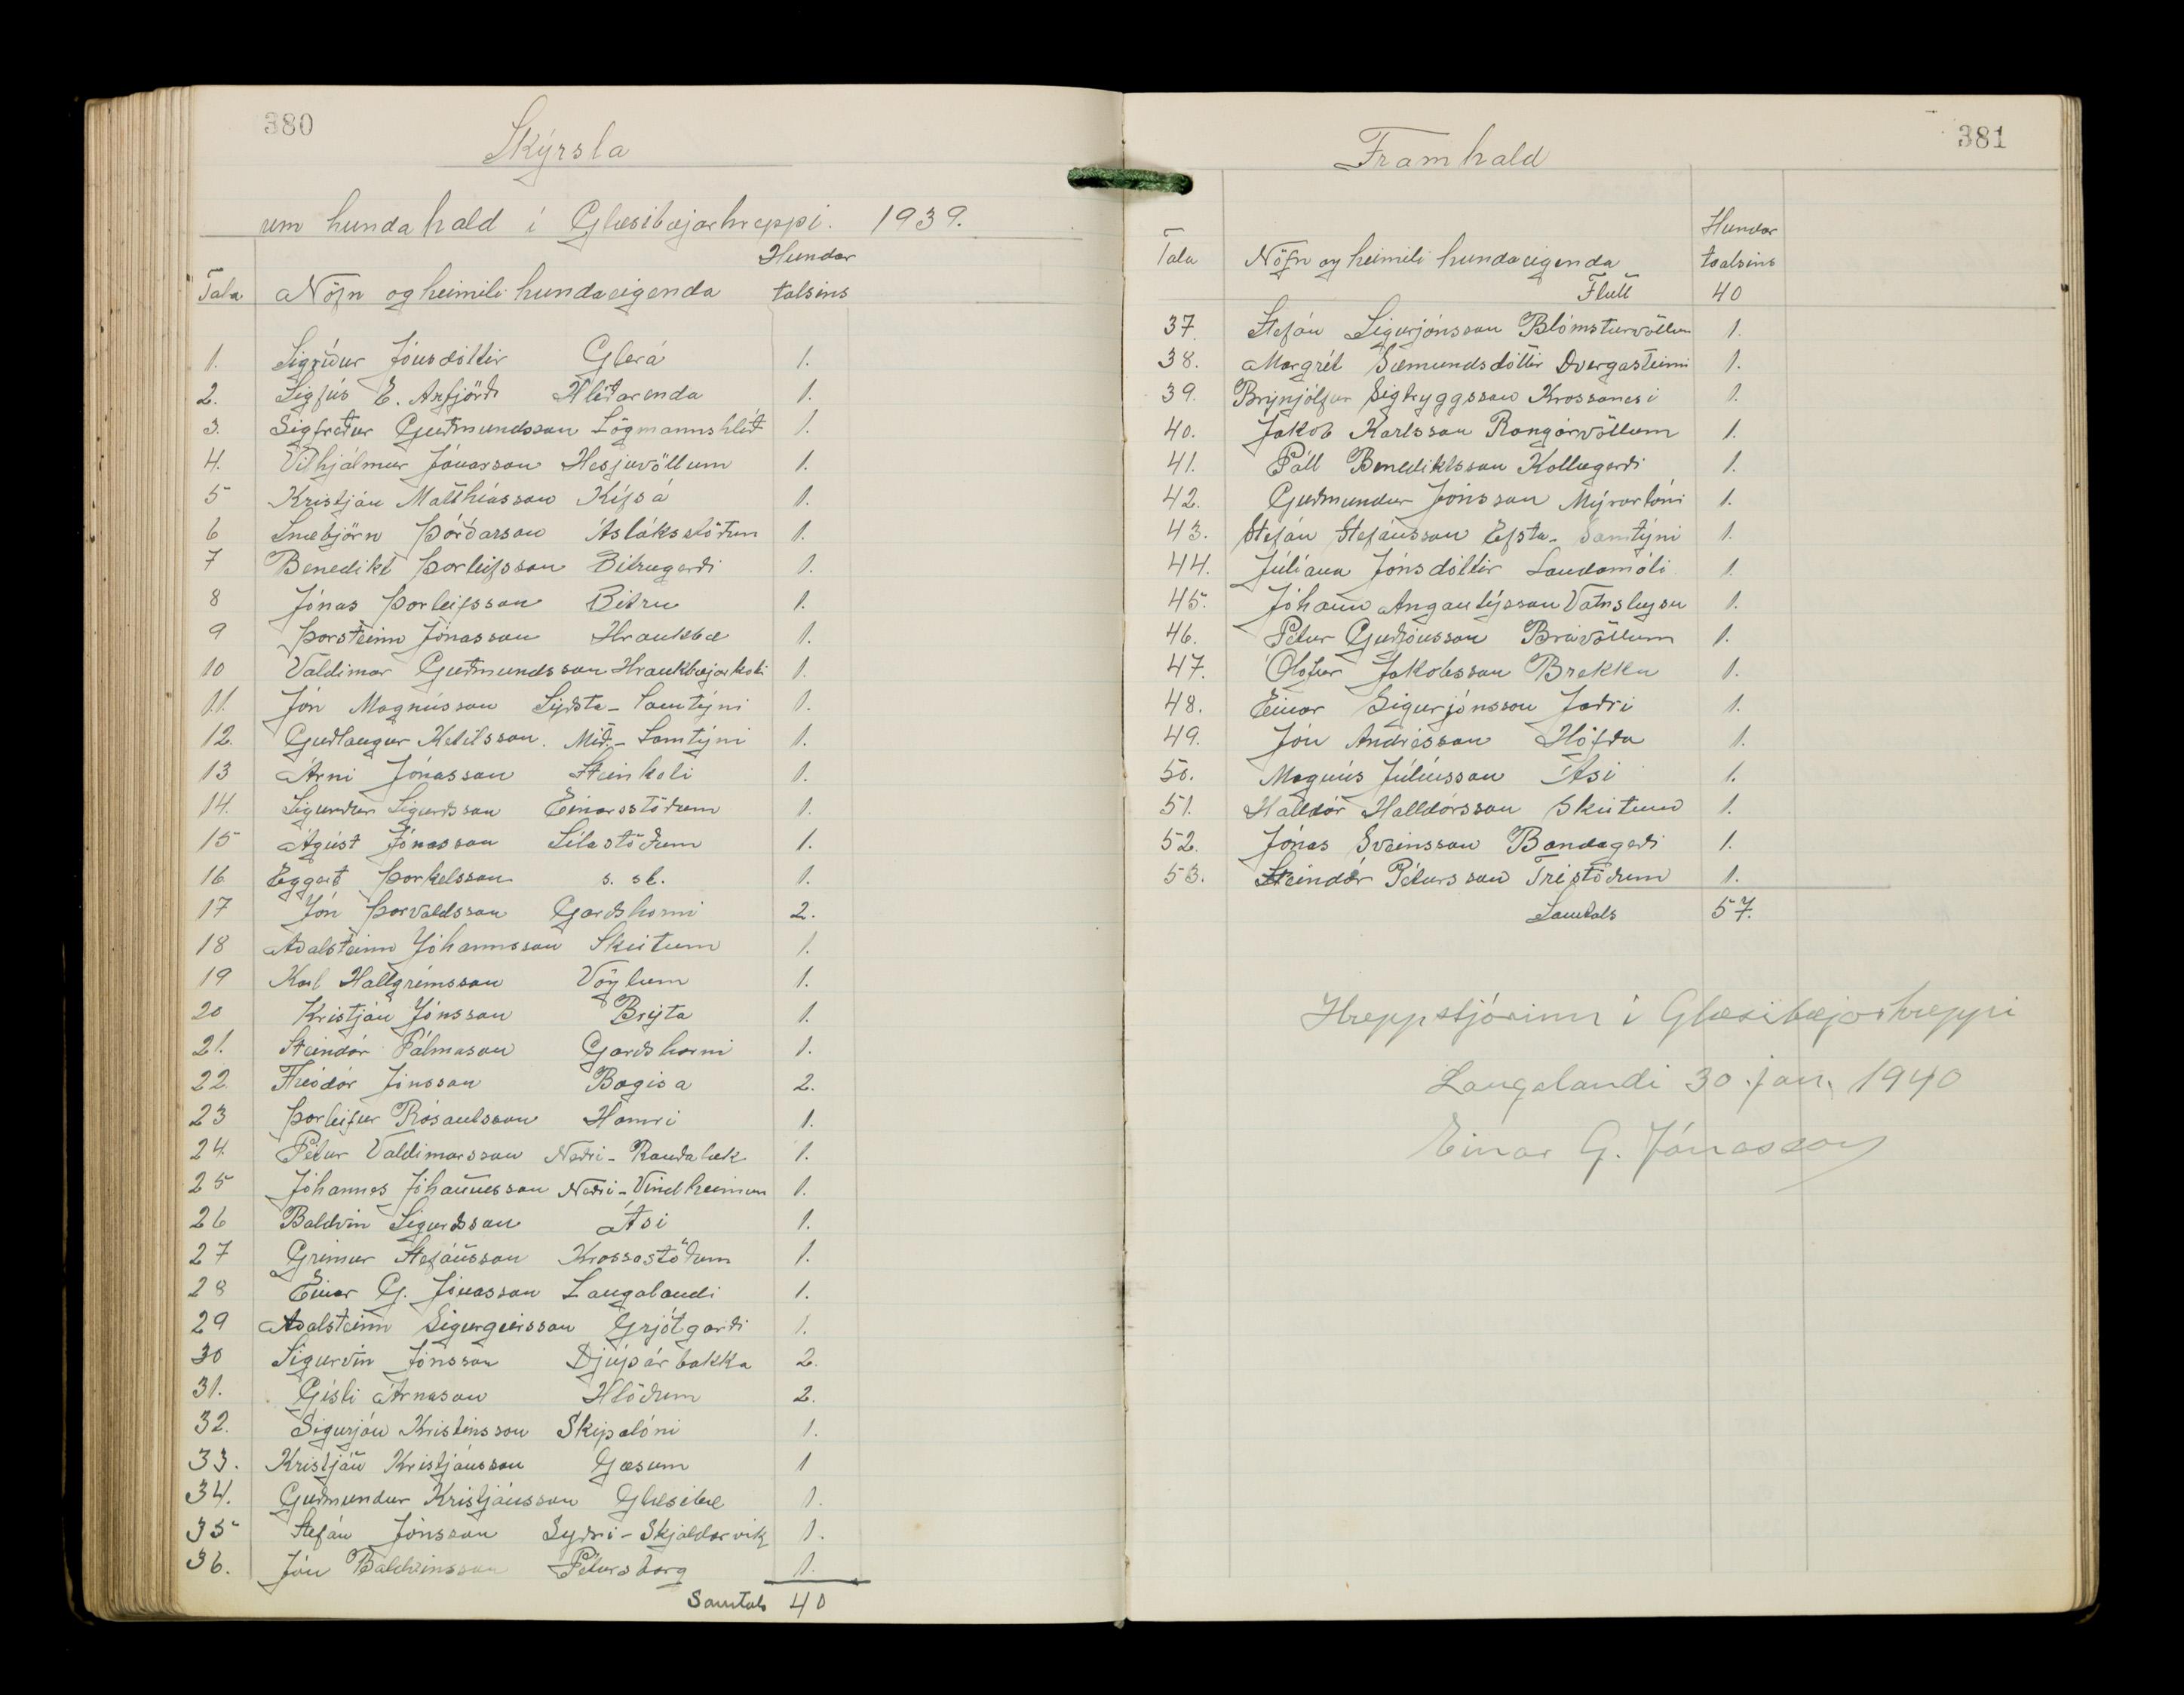 380
Skýrsla
um hundahald í Glæsibæjarhreppi. 1939.
Hundar
Tala Nöfn og heimili hundaeigenda talsins
1. Sigríður Jónsdóttir Glerá 1.
2. Sigfús E. Arfjörð Hlíðarenda 1.
3. Sigfreður Guðmundsson Lögmannshlíð 1.
4. Vilhjálmur Jónasson Hesjuvöllum 1.
5 Kristján Matthíasson Kífsá 1.
6 Snæbjörn Þórðarson Ásláksstöðum 1.
7 Benedikt Þorleifsson Bitrugerði 1.
8 Jónas Þorleifsson Bitru 1.
9 Þorsteinn Jónasson Hraukbæ 1.
10 Valdimar Guðmundsson Hraukbæjarkoti 1.
11. Jón Magnússon Syðsta-Samtýni 1.
12. Guðlaugur Ketilsson. Mið-Samtýni 1.
13 Árni Jónasson Steinkoti 1.
14. Sigurður Sigurðsson Einarsstöðum 1.
15 Ágúst Jónasson Sílastöðum 1.
16 Eggert Þorkelsson s. st. 1.
17 Jón Þorvaldsson Garðshorni 2.
18 Aðalsteinn Jóhannsson Skútum 1.
19 Karl Hallgrímsson Vöglum 1.
20 Kristján Jónsson Brýta 1.
21. Steindór Pálmason Garðshorni 1.
22. Theódór Jónsson Bægisá 2.
23 Þorleifur Rósantsson Hamri 1.
24. Pétur Valdimarsson Neðri-Rauðalæk 1.
25 Jóhannes Jóhannesson Neðri-Vindheimum 1.
26 Baldvin Sigurðsson Ási 1.
27 Grímur Stefánsson Krossastöðum 1.
28 Einar G. Jónasson Laugalandi 1.
29 Aðalsteinn Sigurgeirsson Grjótgarði 1.
30 Sigurvin Jónsson Djúpárbakka 2.
31. Gísli Árnason Hlöðum 2.
32. Sigurjón Kristinsson Skipalóni 1.
33. Kristján Kristjánsson Gæsum 1
34. Guðmundur Kristjánsson Glæsibæ 1.
35 Stefán Jónsson Syðri-Skjaldarvík 1.
36. Jón Baldvinsson Pétursborg 1.
Samtals 40
381
Framhald
Hundar
Tala Nöfn og heimili hundaeigenda taalsins
Flutt 40
37. Stefán Sigurjónsson Blómsturvöllum 1.
38. Margrét Sæmundsdóttir Dvergasteini 1.
39. Brynjólfur Sigtryggsson Krossanesi 1.
40. Jakob Karlsson Rangárvöllum 1.
41. Páll Benediktsson Kollugerði 1.
42. Guðmundur Jónsson Mýrarlóni 1.
43. Stefán Stefánsson Efsta-Samtýni 1.
44. Júlíana Jónsdóttir Landamóti 1.
45. Jóhann Angantýsson Vatnsleysu 1.
46. Pétur Guðjónsson Brávöllum 1.
47. Ólafur Jakobsson Brekku 1.
48. Einar Sigurjónsson Jaðri 1.
49. Jón Andrésson Höfða 1.
50. Magnús Júlíusson Ási 1.
51. Halldór Halldórsson Skútum 1.
52. Jónas Sveinsson Bandagerði 1.
53. Steindór Pétursson Tréstöðum 1.
Samtals 57.
Hreppstjórinn í Glæsibæjarhreppi
Laugalandi 30. jan. 1940
Einar G. Jónasson